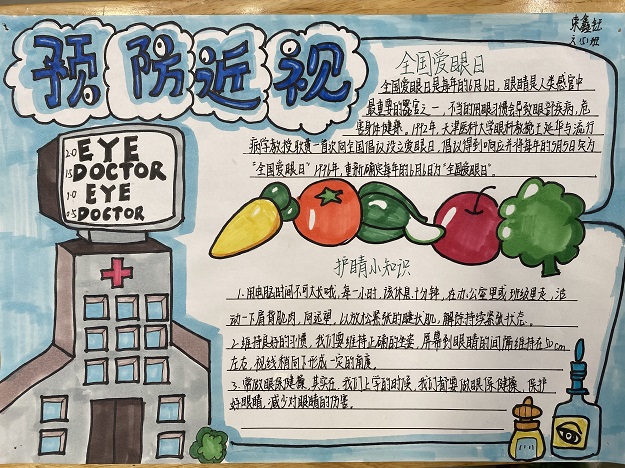 预防近视
束鑫钰
2.0 EYE
1.5 DOCTOR
1.0 EYE
0.5 DOCTOR
全国爱眼日
全国爱眼日是每年的6月6日，眼睛是人类感官中
最重要的器官之一，不当的用眼习惯会导致眼部疾病，危
害身体健康。1992年，天津医科大学眼科教授王延华与流行
病学教授耿贯一首次向全国倡议设立爱眼日，倡议得到响应并将每年的5月5日定为
“全国爱眼日”1996年，重新确定每年的6月6日为“全国爱眼日。”
护睛小知识
1.用电脑时间不可太长哦，每一小时，该休息十分钟，在办公室里或班级里走，活
动一下肩背肌肉，向远望，以放松紧张的睫状肌，解除持续紧张状态。
2.维持良好的习惯，我们要维持正确的坐姿，屏幕到眼睛的间隔维持在50cm
左右，视线稍向下形成一定的角度。
3.常做眼保健操，其实在，我们上学的时候，我们都要做眼保健操，保护
好眼睛，减少对眼睛的伤害。